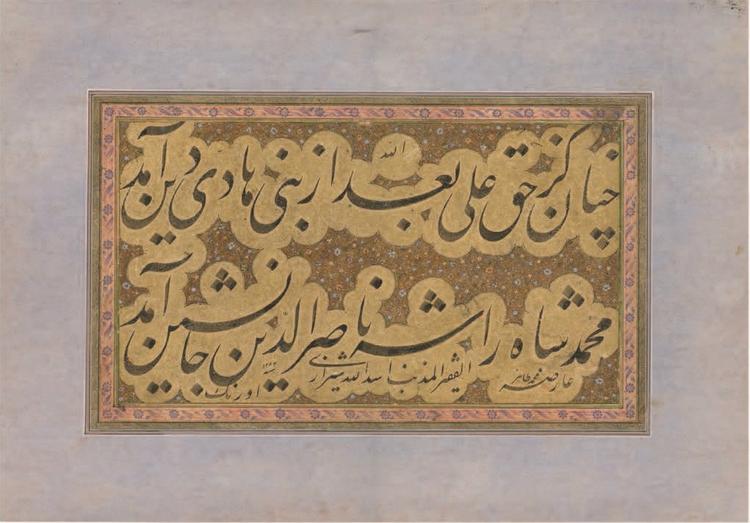 الله
چنان کز حق علی بعد از نبی هادی دین آمد
محمد شاه را شه ناصر الدین جانشین آمد
محمد طاهر
الفقیر المذنب اسد الله شیرازی
اورنک